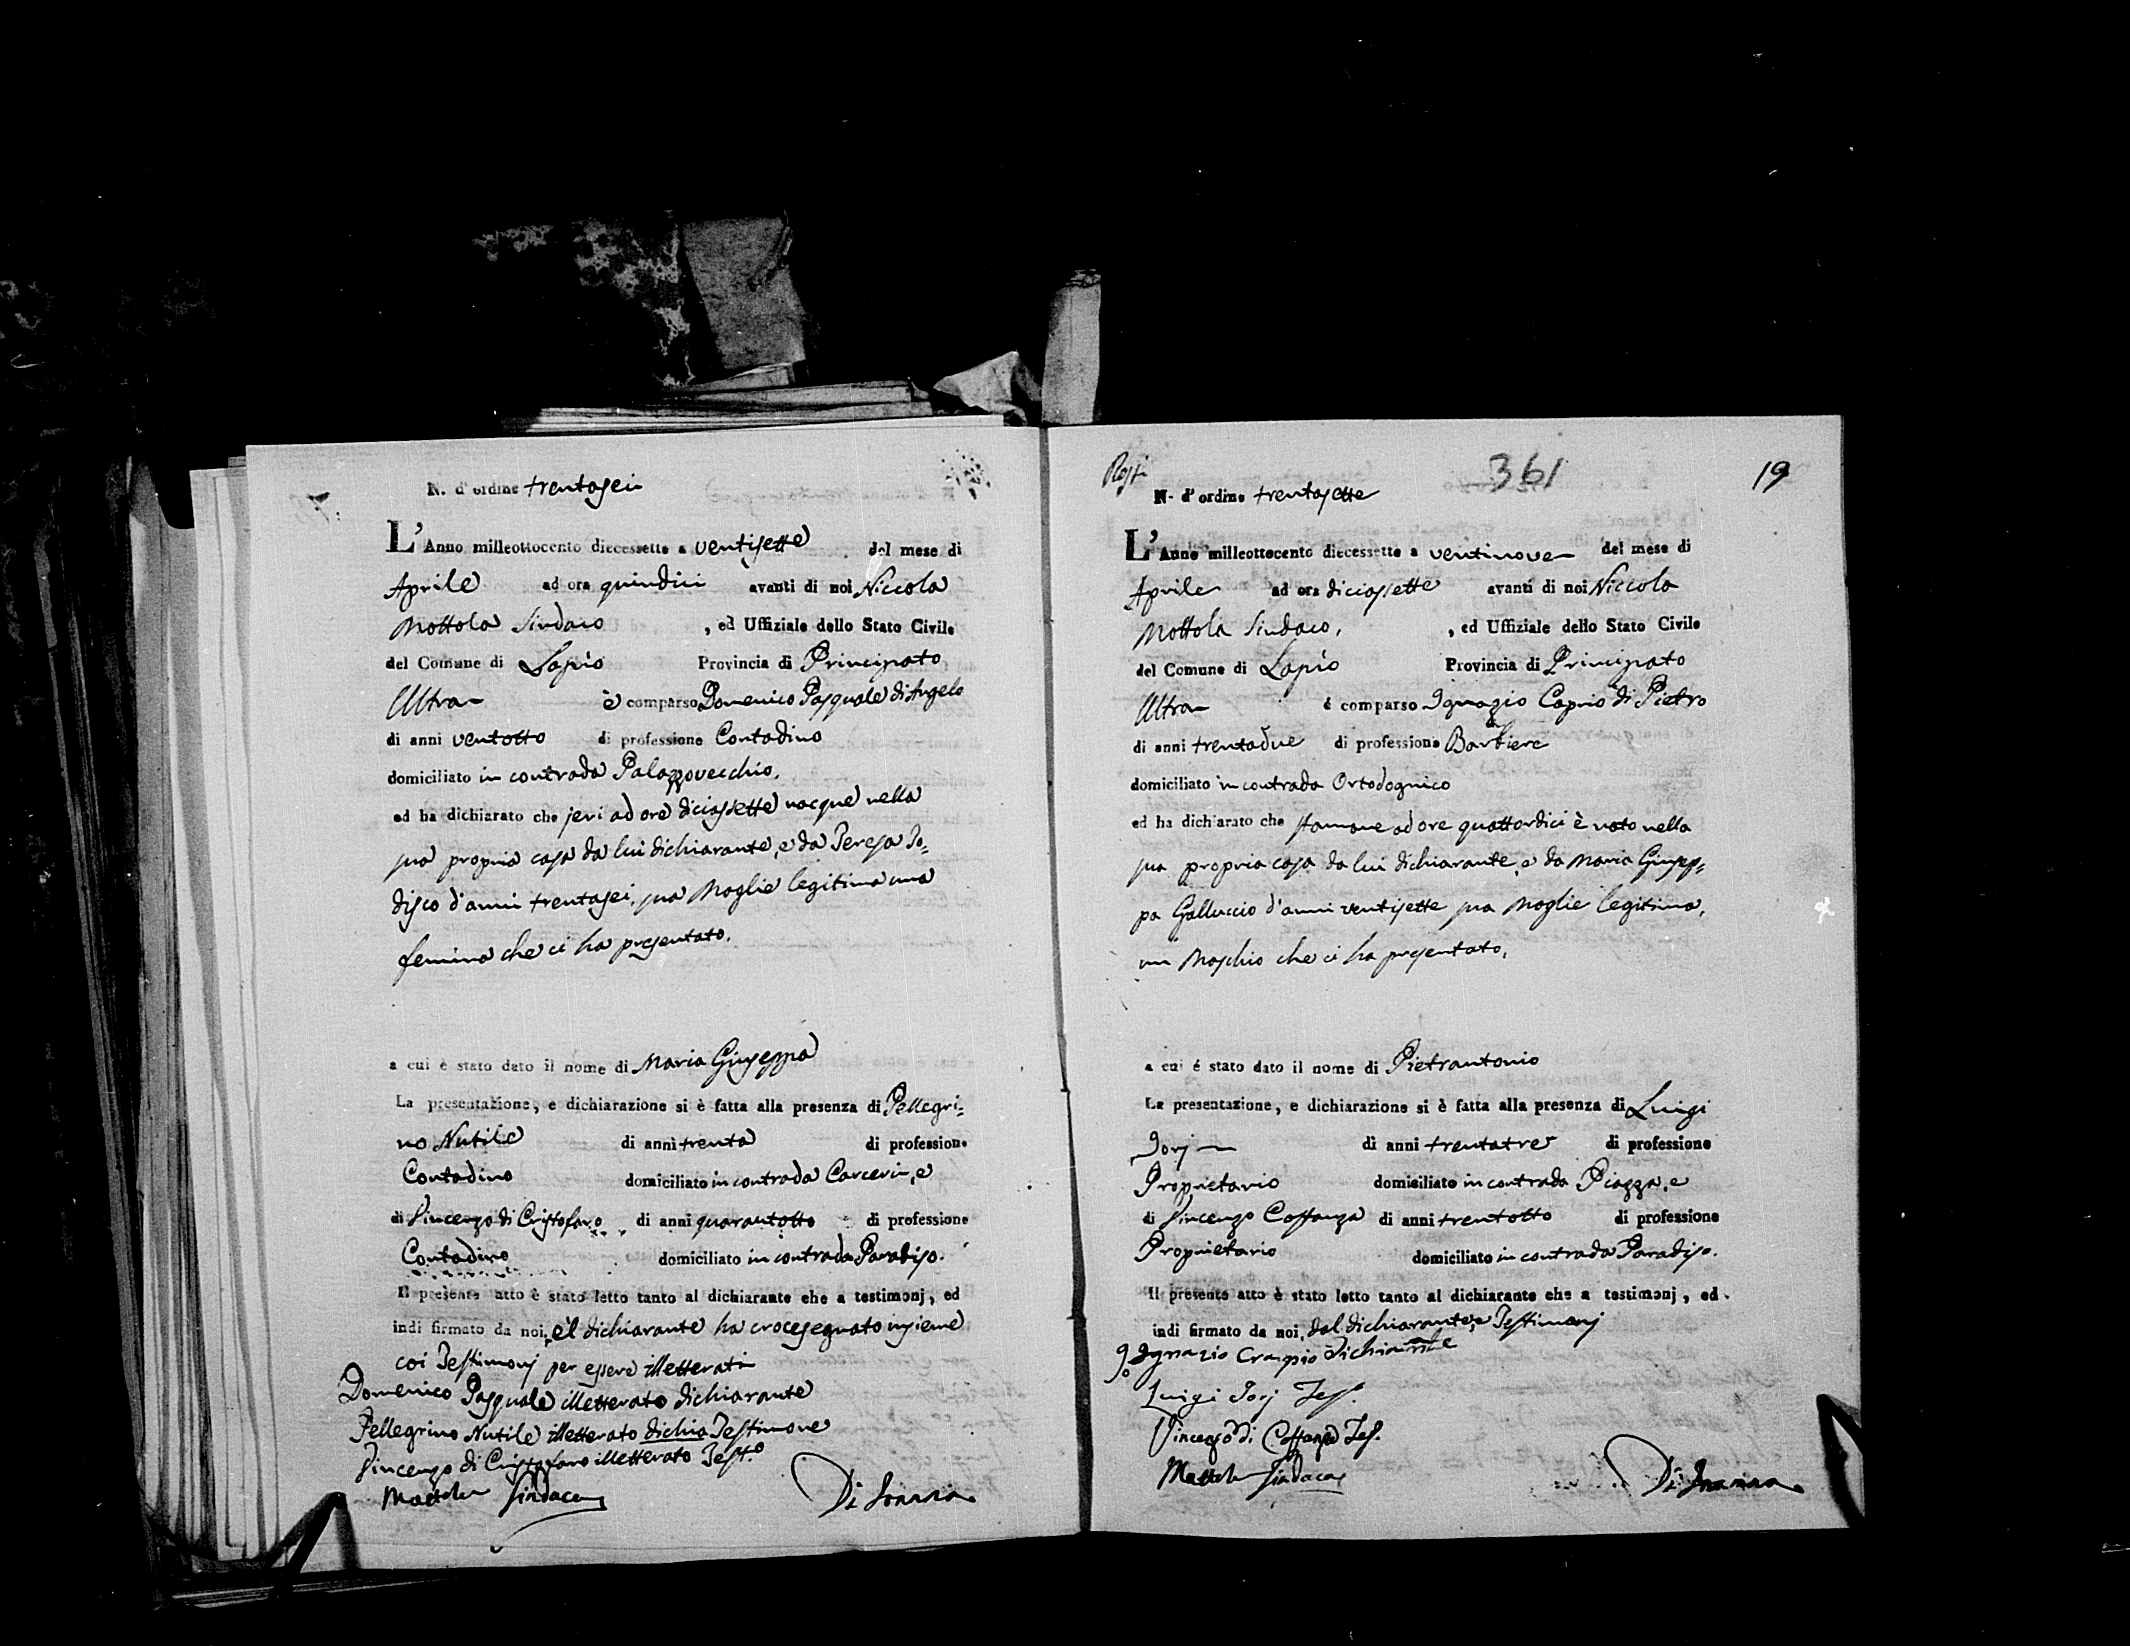 N. d'ordine trentasei
L'Anno milleottocento diecessette a ventisette del mese di
Aprile ad ora quindici avanti di noi Niccola
Mottola Sindaco , ed Uffiziale dello Stato Civile
del Comune di Lapio Provincia di Principato
Ultra è comparso Domenico Pasquale di Angelo
di anni ventotto di professione Contadino
domiciliato in contrada Palazzovecchio.
ed ha dichiarato che jeri ad ore diciassette nacque nella
sua propria casa da lui dichiarante, e da Teresa To=
disco d'anni trentasei, sua Moglie legitima una
femina che ci ha presentato.
a cui è stato dato il nome di Maria Giuseppa
La presentazione, e dichiarazione si è fatta alla presenza di Pellegri=
no Nutile di anni trenta di professione
Contadino domiciliato in contrada Carceri, e
di Vincenzo di Cristofaro di anni quarantotto di professione
Contadino domiciliato in contrada Paradiso.
Il presente atto è stato letto tanto al dichiarante che a testimonj, ed
indi firmato da noi, e'l dichiarante ha crocesegnato insieme
coi Testimonj per essere illetterati
Domenico Pasquale illetterato dichiarante
Pellegrino Nutile illetterato dichia Testimone
Vincenzo di Cristofaro illetterato Test.o
Mottola Sindaco Di Ioanna
361 19
N. d'ordine trentasette
L'Anno milleottocento diecessette a ventinove del mese di
Aprile ad ora diciassette avanti di noi Niccola
Mottola Sindaco, , ed Uffiziale dello Stato Civile
del Comune di Lapio Provincia di Principato
Ultra é comparso Ignazio Caprio di Pietro
di anni trentadue di professione Barbiere
domiciliato in contrada Ortodognico
ed ha dichiarato che stamane ad ore quattordici è nato nella
sua propria casa da lui dichiarante, e da Maria Giusep=
pa Galluccio d'anni ventisette sua Moglie legitima,
un Maschio che ci ha presentato,
a cui é stato dato il nome di Pietrantonio
La presentazione, e dichiarazione si è fatta alla presenza di Luigi
Iorj di anni trentatre di professione
Proprietario domiciliato in contrada Piazza, e
di Vincenzo Costanza di anni trentotto di professione
Proprietario domiciliato in contrada Paradiso.
Il presente atto è stato letto tanto al dichiarante che a testimonj, ed
indi firmato da noi, dal dichiarante, e Testimonj
Ignazio Crapio dichiarante
Luigi Iorj Tes.
Vincenzo di Costanza Tes.
Mottola Sindaco Di Ioanna